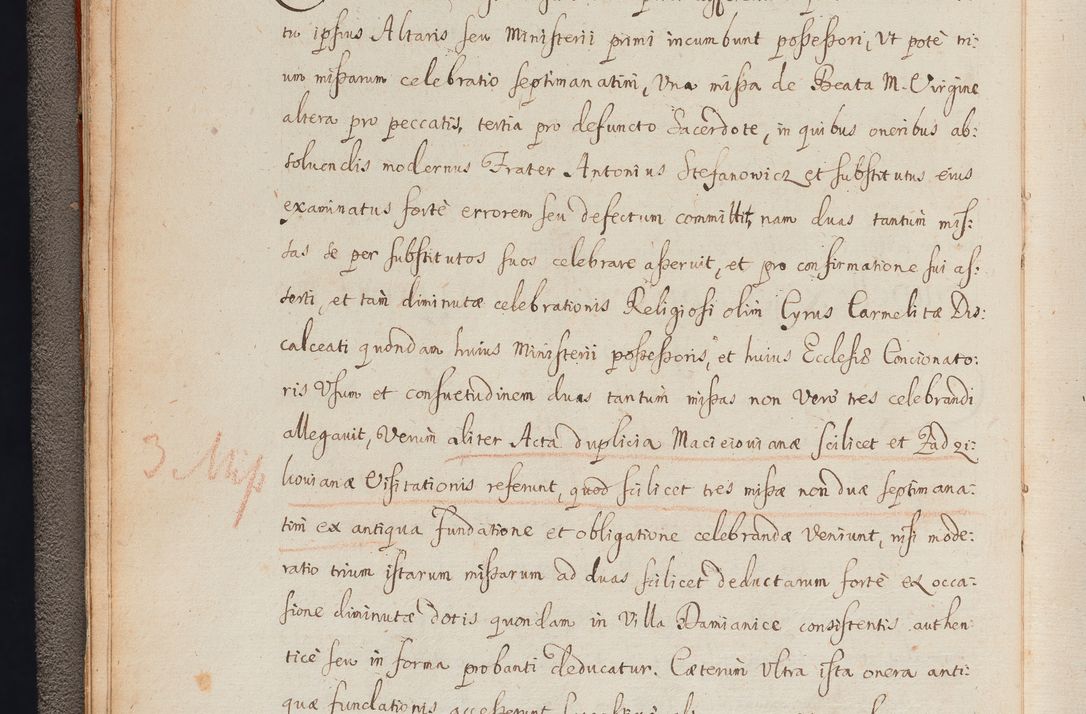 tu ipsius Altaris seu Ministerii primi incumbunt possessori, Ut potè tri-
um missarum celebratio septimanatim, Una missa de Beata M. Virgine
altera pro peccatis, tertia pro defuncto Sacerdote, in quibus oneribus ab:
soluendis modernus Frater Antonius Stefanowicz et substitutus eius
examinatus fortè errorem seu defectum committit, nam duas tantum mis:
sas se per substitutos suos celebrare asseruit, et pro confirmatione sui as:
serti, et tam diminutæ celebrationis Religiosi olim Cyrus Carmelitæ Dis:
calceati quondam huius Ministerii possessoris, et huius Ecclesiæ Concionato:
ris Usum et consuetudinem duas tantum missas non Verò tres celebrandi
allegauit, Verum aliter Acta duplicia Macieiouianæ scilicet et Radzi:
3 Miss
liouianæ Visitationis referunt, quod scilicet tres missæ non duæ septimana:
tim ex antiqua Fundatione et obligatione celebrandæ Veniunt, nisi mode:
ratio trium istarum missarum ad duas scilicet deductarum fortè ex occa:
sione diminutæ dotis quondam in Villa Damianice consistentis authen:
ticè seu in forma probanti deducatur. Cæterum Ultra ista onera anti:
quæ fundationis accesserunt